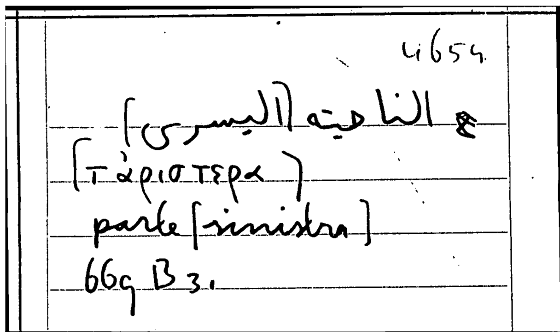 4654
الناحية [اليسرى]
[τἀριστερα]
parte [sinistra]
669 B 3.